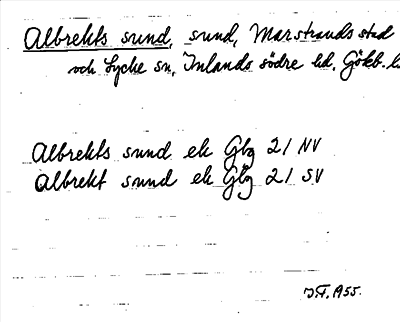 Albrekts sund, sund, Marstrands stad
och Lycke sn, Inlands södre hd, Götb. l.
Albrekts sund ek Gbg 21 NV
Albrekt sund ek Gbg 21 SV
1955.